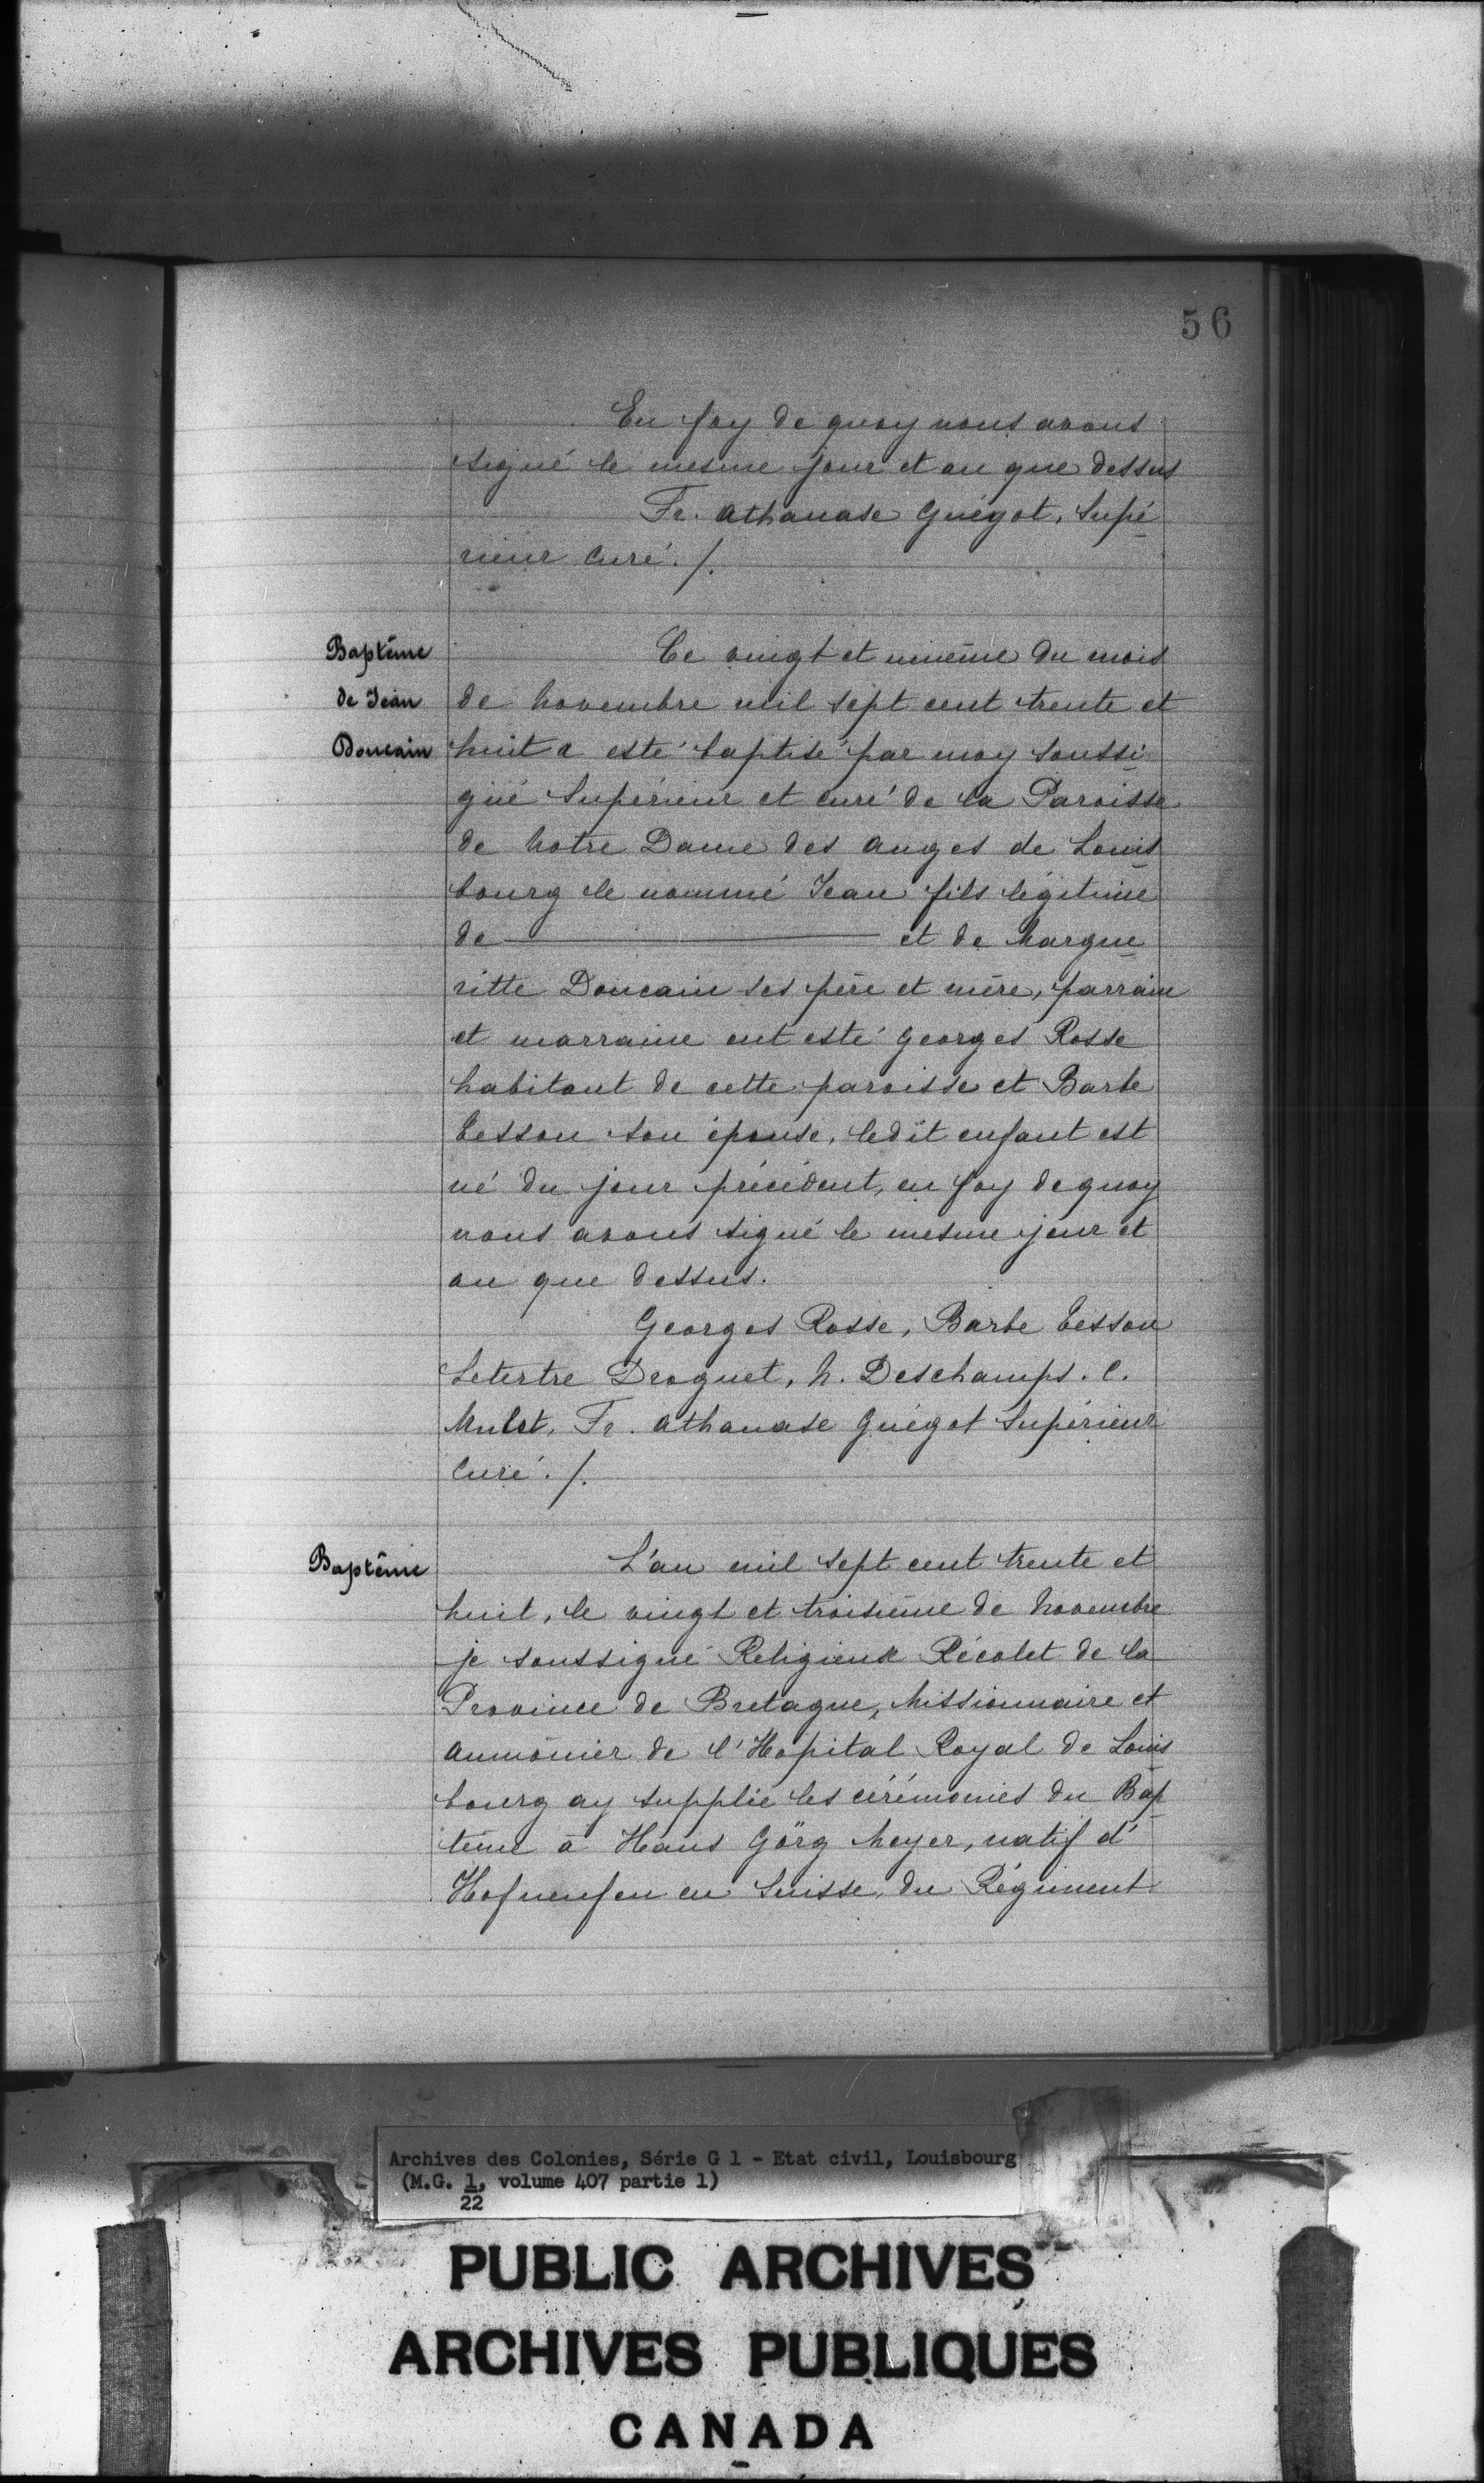 56
En foy de quoy nous avons
signé le mesme jour et an que dessus
Fr. Athanase Guégot, Supé
rieur Curé ./.
Baptême
de Jean
Doucain
Ce vingt et unième du mois
de Novembre mil sept cent trente et
huit a esté baptisé par moy soussi
gné Supérieur et curé de la Paroisse
de Notre Dame des Anges de Louis
bourg le nommé Jean fils légitime
de ——— et de Margue
ritte Doucain ses père et mère, parrain
et marraine ont esté Georges Rosse
habitant de cette paroisse et Barbe
Cesson son épouse, ledit enfant est
né du jour précédent, en foy de quoy
nous avons signé le mesme jour et
an que dessus.
Georges Rosse, Barbe Cesson
Letertre Droguet, N. Deschamps. C.
Mulot, Fr. Athanase Guégot Supérieur
Curé ./.
Baptême
L'an mil sept cent trente et
huit, le vingt et troisième de Novembre
je soussigné Religieux Récolet de la
Province de Bretagne, Missionnaire et
Aumônier de l'Hopital Royal de Louis
bourg ay supplié les cérémonies du Bap
tème à Hans Görg Meyer, natif d'
en Suisse, du Régiment
Archives des Colonies, Série G 1 - Etat civil, Louisbourg
(M.G. 1, volume 407 partie 1)
22
PUBLIC ARCHIVES
ARCHIVES PUBLIQUES
CANADA